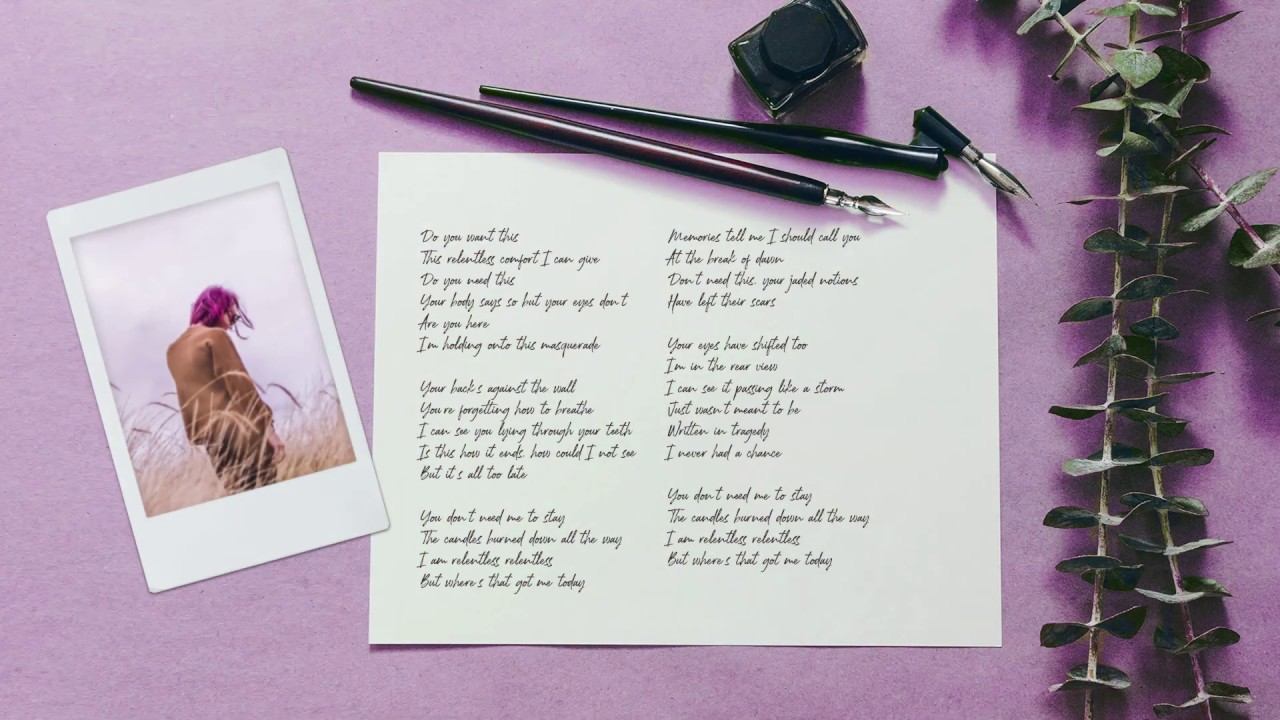 Do you want this
This relentless comfort I can give
Do you need this
Your body says so but your eyes don't
Are you here
I'm holding onto this masquerade
Your back's against the wall
You're forgetting how to breathe
I can see you lying through your teeth
Is this how it ends, how could I not see
But it's all too late
You don't need me to stay
The candles burned down all the way
I am relentless relentless
But where's that got me today
Memories tell me I should call you
At the break of dawn
Don't need this, your jaded notions
Have left their scars
Your eyes have shifted too
I'm in the rear view
I can see it passing like a storm
Just wasn't meant to be
Written in tragedy
I never had a chance
You don't need me to stay
The candles burned down all the way
I am relentless relentless
But where's that got me today